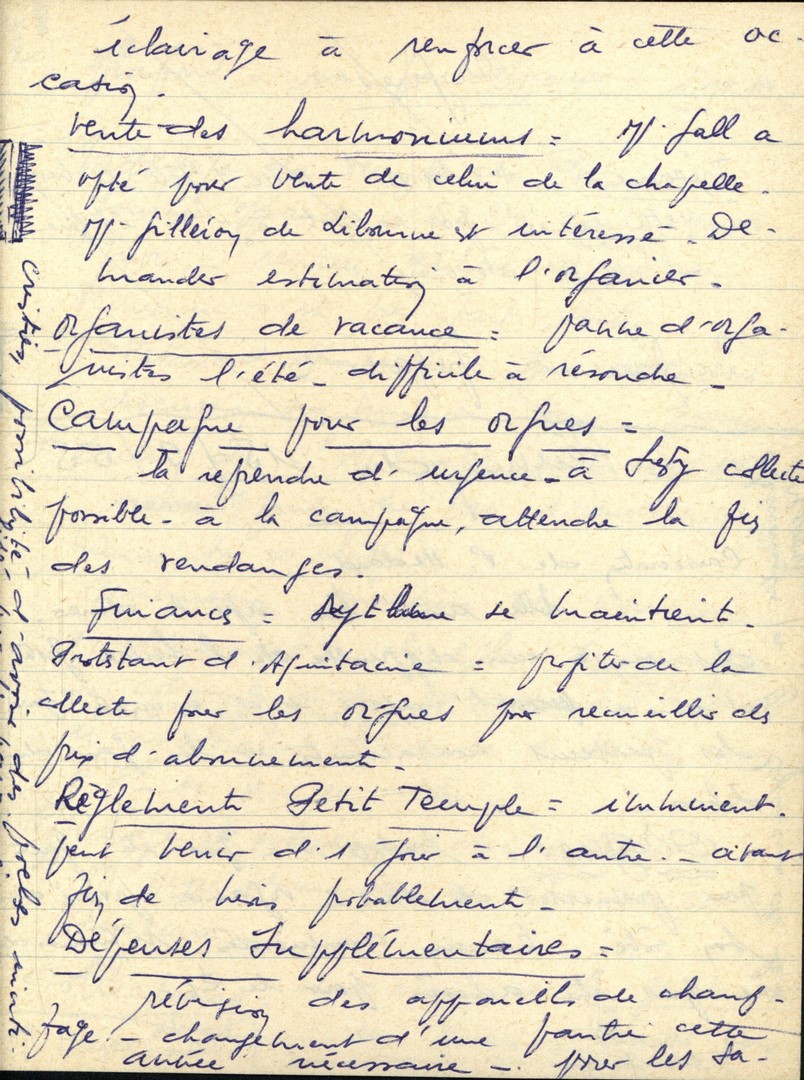 éclairage à renforcer à cette oc-
casion.
Vente des harmoniums = M. Gall a
opté pour vente de celui de la chapelle.
M. Gilliéron de Libourne est intéressé. De-
mander estimation à l'organier.
Organistes de vacance = panne d'orga-
nistes l'été - difficile à résoudre -
Campagne pour les orgues =
la reprendre d'urgence - à collecte
possible - à la campagne, attendre la fin
des vendanges.
Finances = se maintient.
Protestant d'Aquitaine = profiter de la
collecte pour les orgues pour recueillir des
prix d'abonnement.
Règlement Petit Temple = imminent.
peut venir d'1 jour à l'autre. - avant
fin de mois probablement -
Dépenses Supplémentaires =
révision des appareils de chauf-
fage. - changement d'une partie cette
année nécessaire - pour les Sa-
possibilité d'avoir des poëles